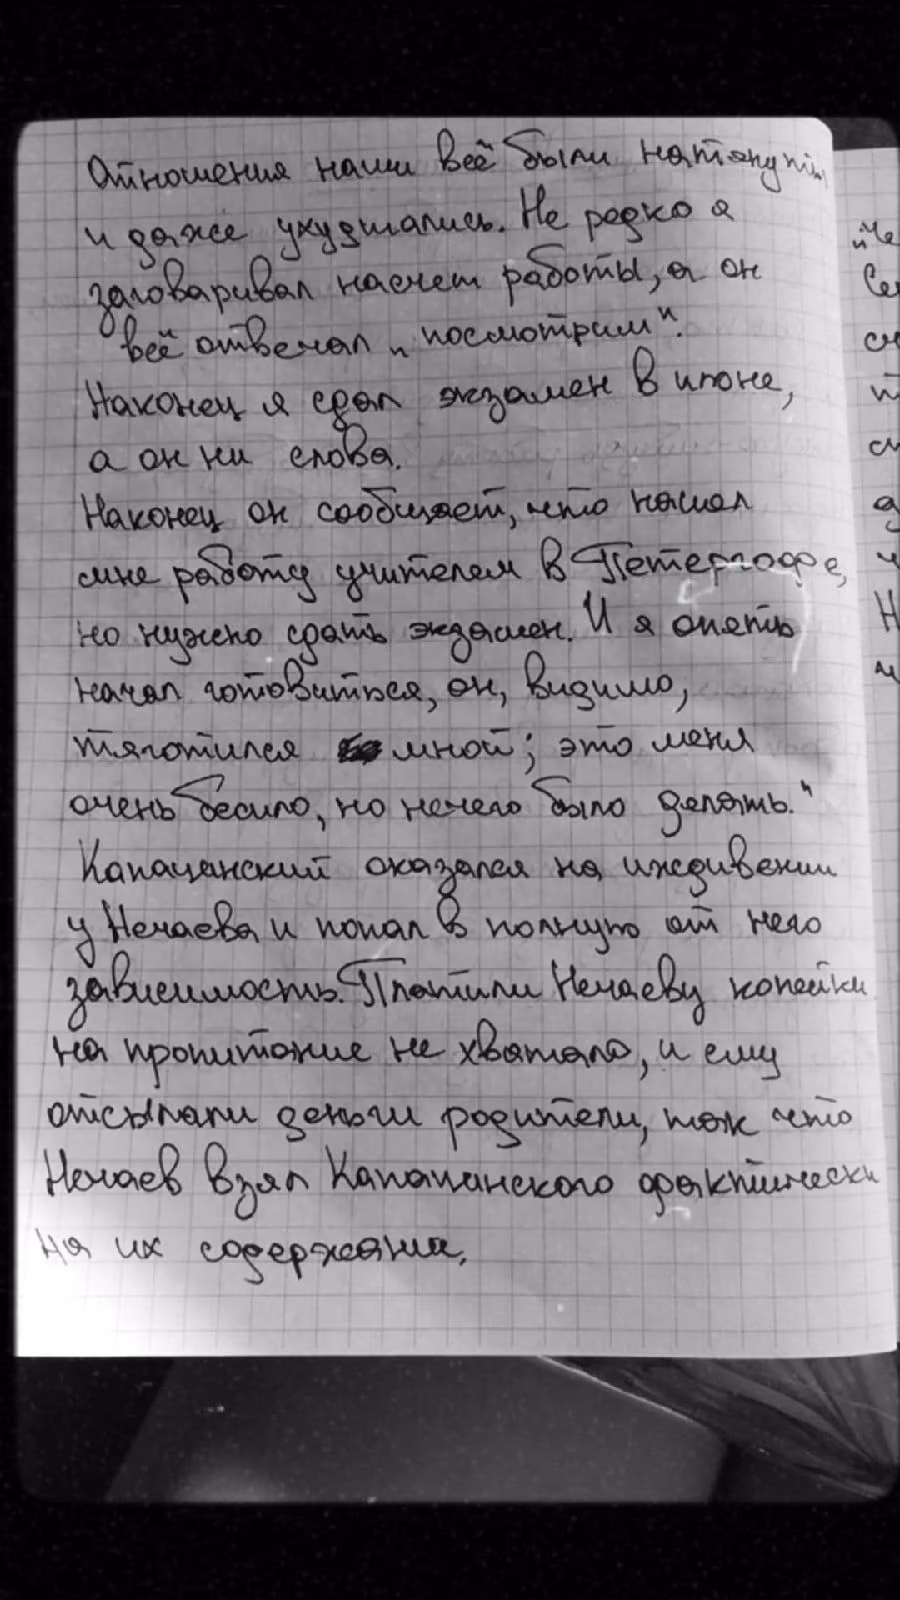 Отношения наши всё были натянуты
и даже ухудшались. Не редко я
заговаривал насчет работы, а он
всё отвечал „посмотрим".
Наконец я сдал экзамен в июне,
а он ни слова.
Наконец он сообщает, что нашел
мне работу учителем в Петергофе,
но нужно сдать экзамен. И я опять
начал готовиться, он, видимо,
тяготился мной; это меня
очень бесило, но нечего было делать."
Капацинский оказался на иждивении
у Нечаева и попал в полную от него
зависимость. Платили Нечаеву копейки
на пропитание не хватало, и ему
отсылали деньги родители, так что
Нечаев взял Капацинского фактически
на их содержание.